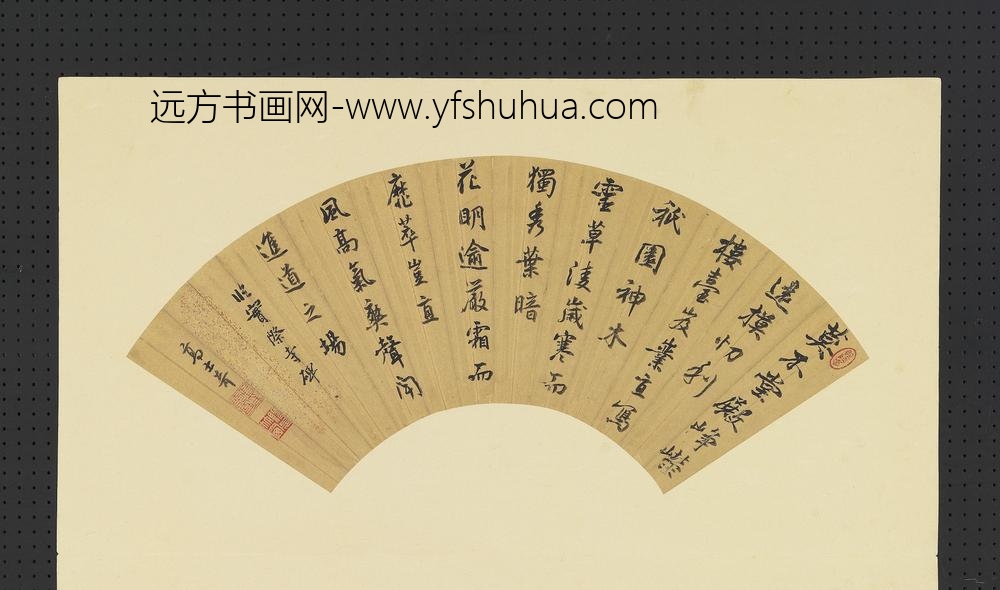 远方书画网-www.yfshuhua.com
莫不堂殿崢嶸
遠模忉利
樓臺岌業直寫
祇園神木
靈草淩歲寒而
獨秀葉暗
花明逾嚴霜而
靡萃豈直
風高氣爽聲聞
進道之場
臨實際寺碑
高士奇